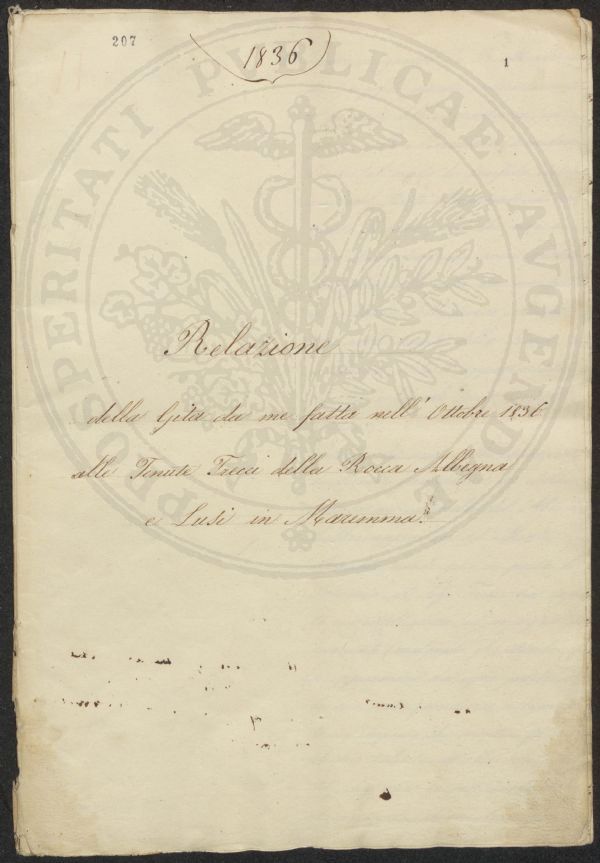 207
1836
1
PROSPERITATI PUBLICAE AUGENDAE
Relazione
della Gita da me fatta nell' Ottobre 1836
alle Tenute Tricci della Rocca Albegna
e Lusi in Maremma.